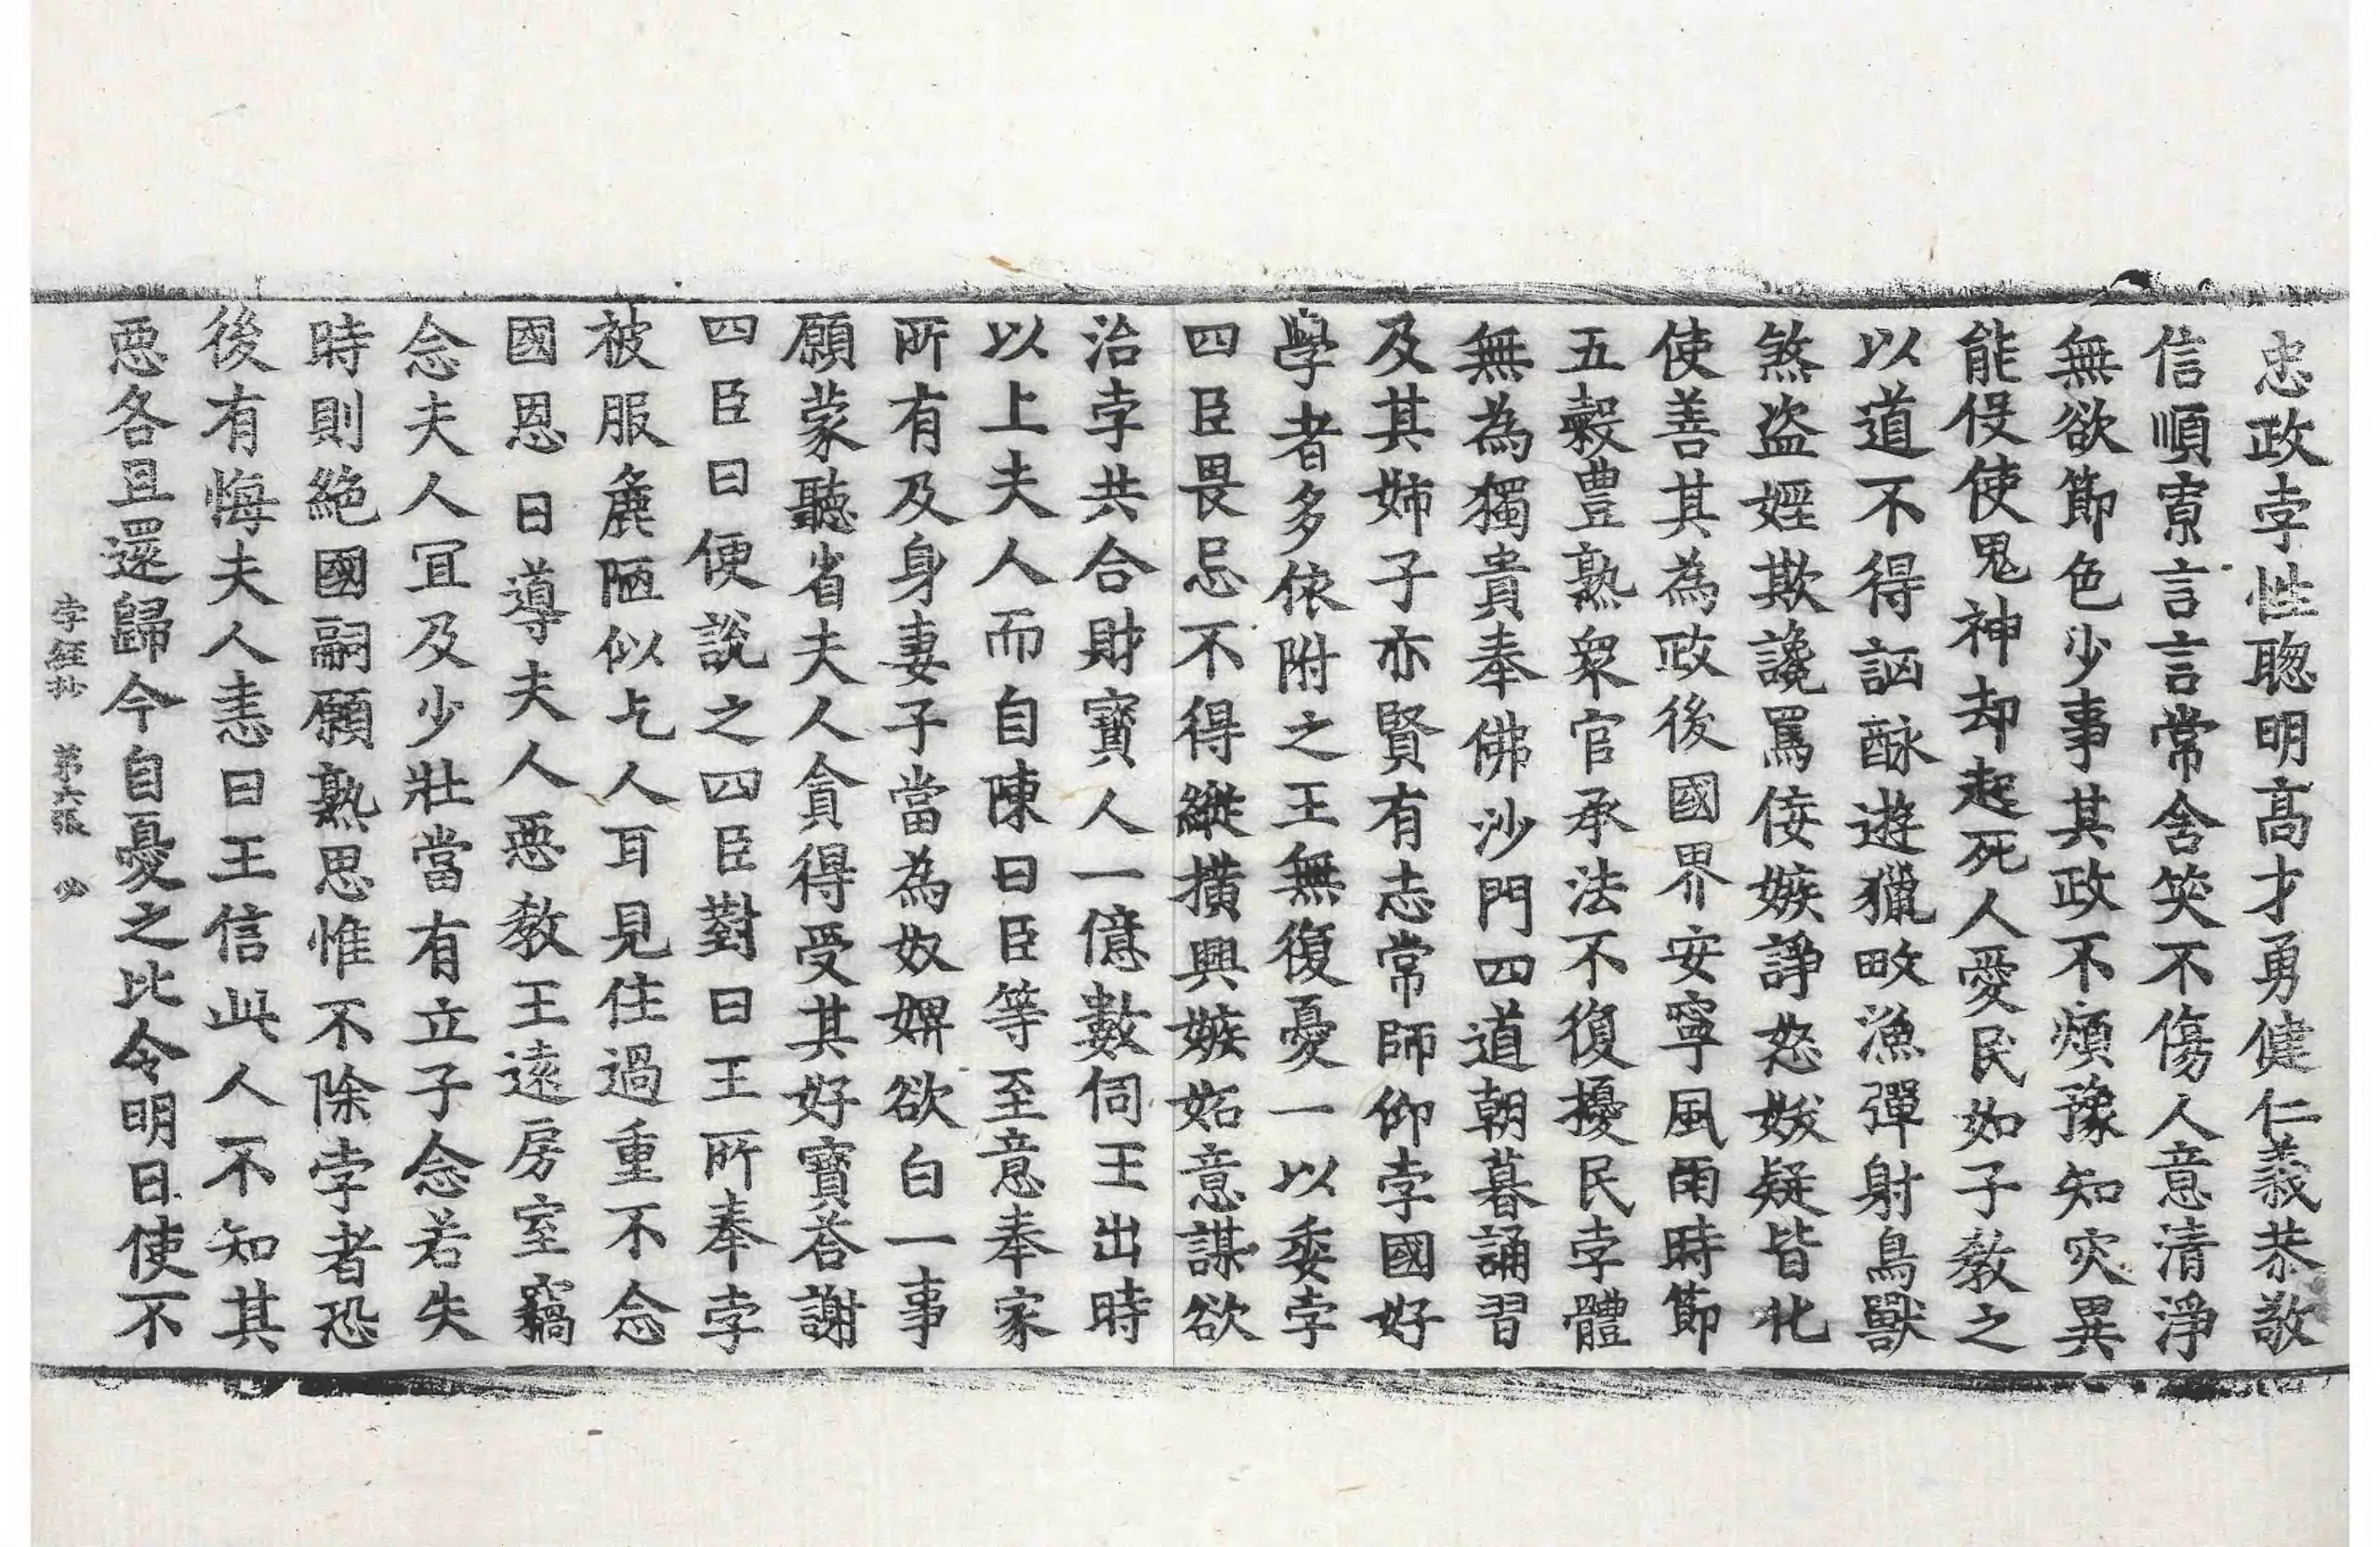 忠政孛性聦明高才勇健仁義恭敬
信順寡言言常含笑不傷人意清淨
無欲節色少事其政不煩豫知灾異
能伇使鬼神却起死人愛民如子教之
以道不得訩酗遊獵畋漁彈射鳥獸
煞盗婬欺讒罵佞嫉諍怒妭疑皆化
使善其為政後國界安寧風雨時節
五穀豊熟衆官承法不復擾民孛體
無為獨貴奉佛沙門四道朝暮誦習
及其姉子亦賢有志常師仰孛國好
學者多依附之王無復憂一以委孛
四臣畏忌不得縱撗興嫉妬意謀欲
治孛共合財寳人一億數伺王出時
以上夫人而自陳曰臣等至意奉家
所有及身妻子當為奴婢欲白一事
願蒙聽省夫人貪得受其好寳荅謝
四臣曰便說之四臣對曰王所奉孛
被服麁陋似乞人耳見住過重不念
國恩日導夫人惡教王遠房室竊
念夫人冝及少壯當有立子念若失
時則絕國嗣願熟思惟不除孛者恐
後有悔夫人恚曰王信此人不知其
惡各且還歸今自憂之比令明日使不
孛經抄　第六張　必